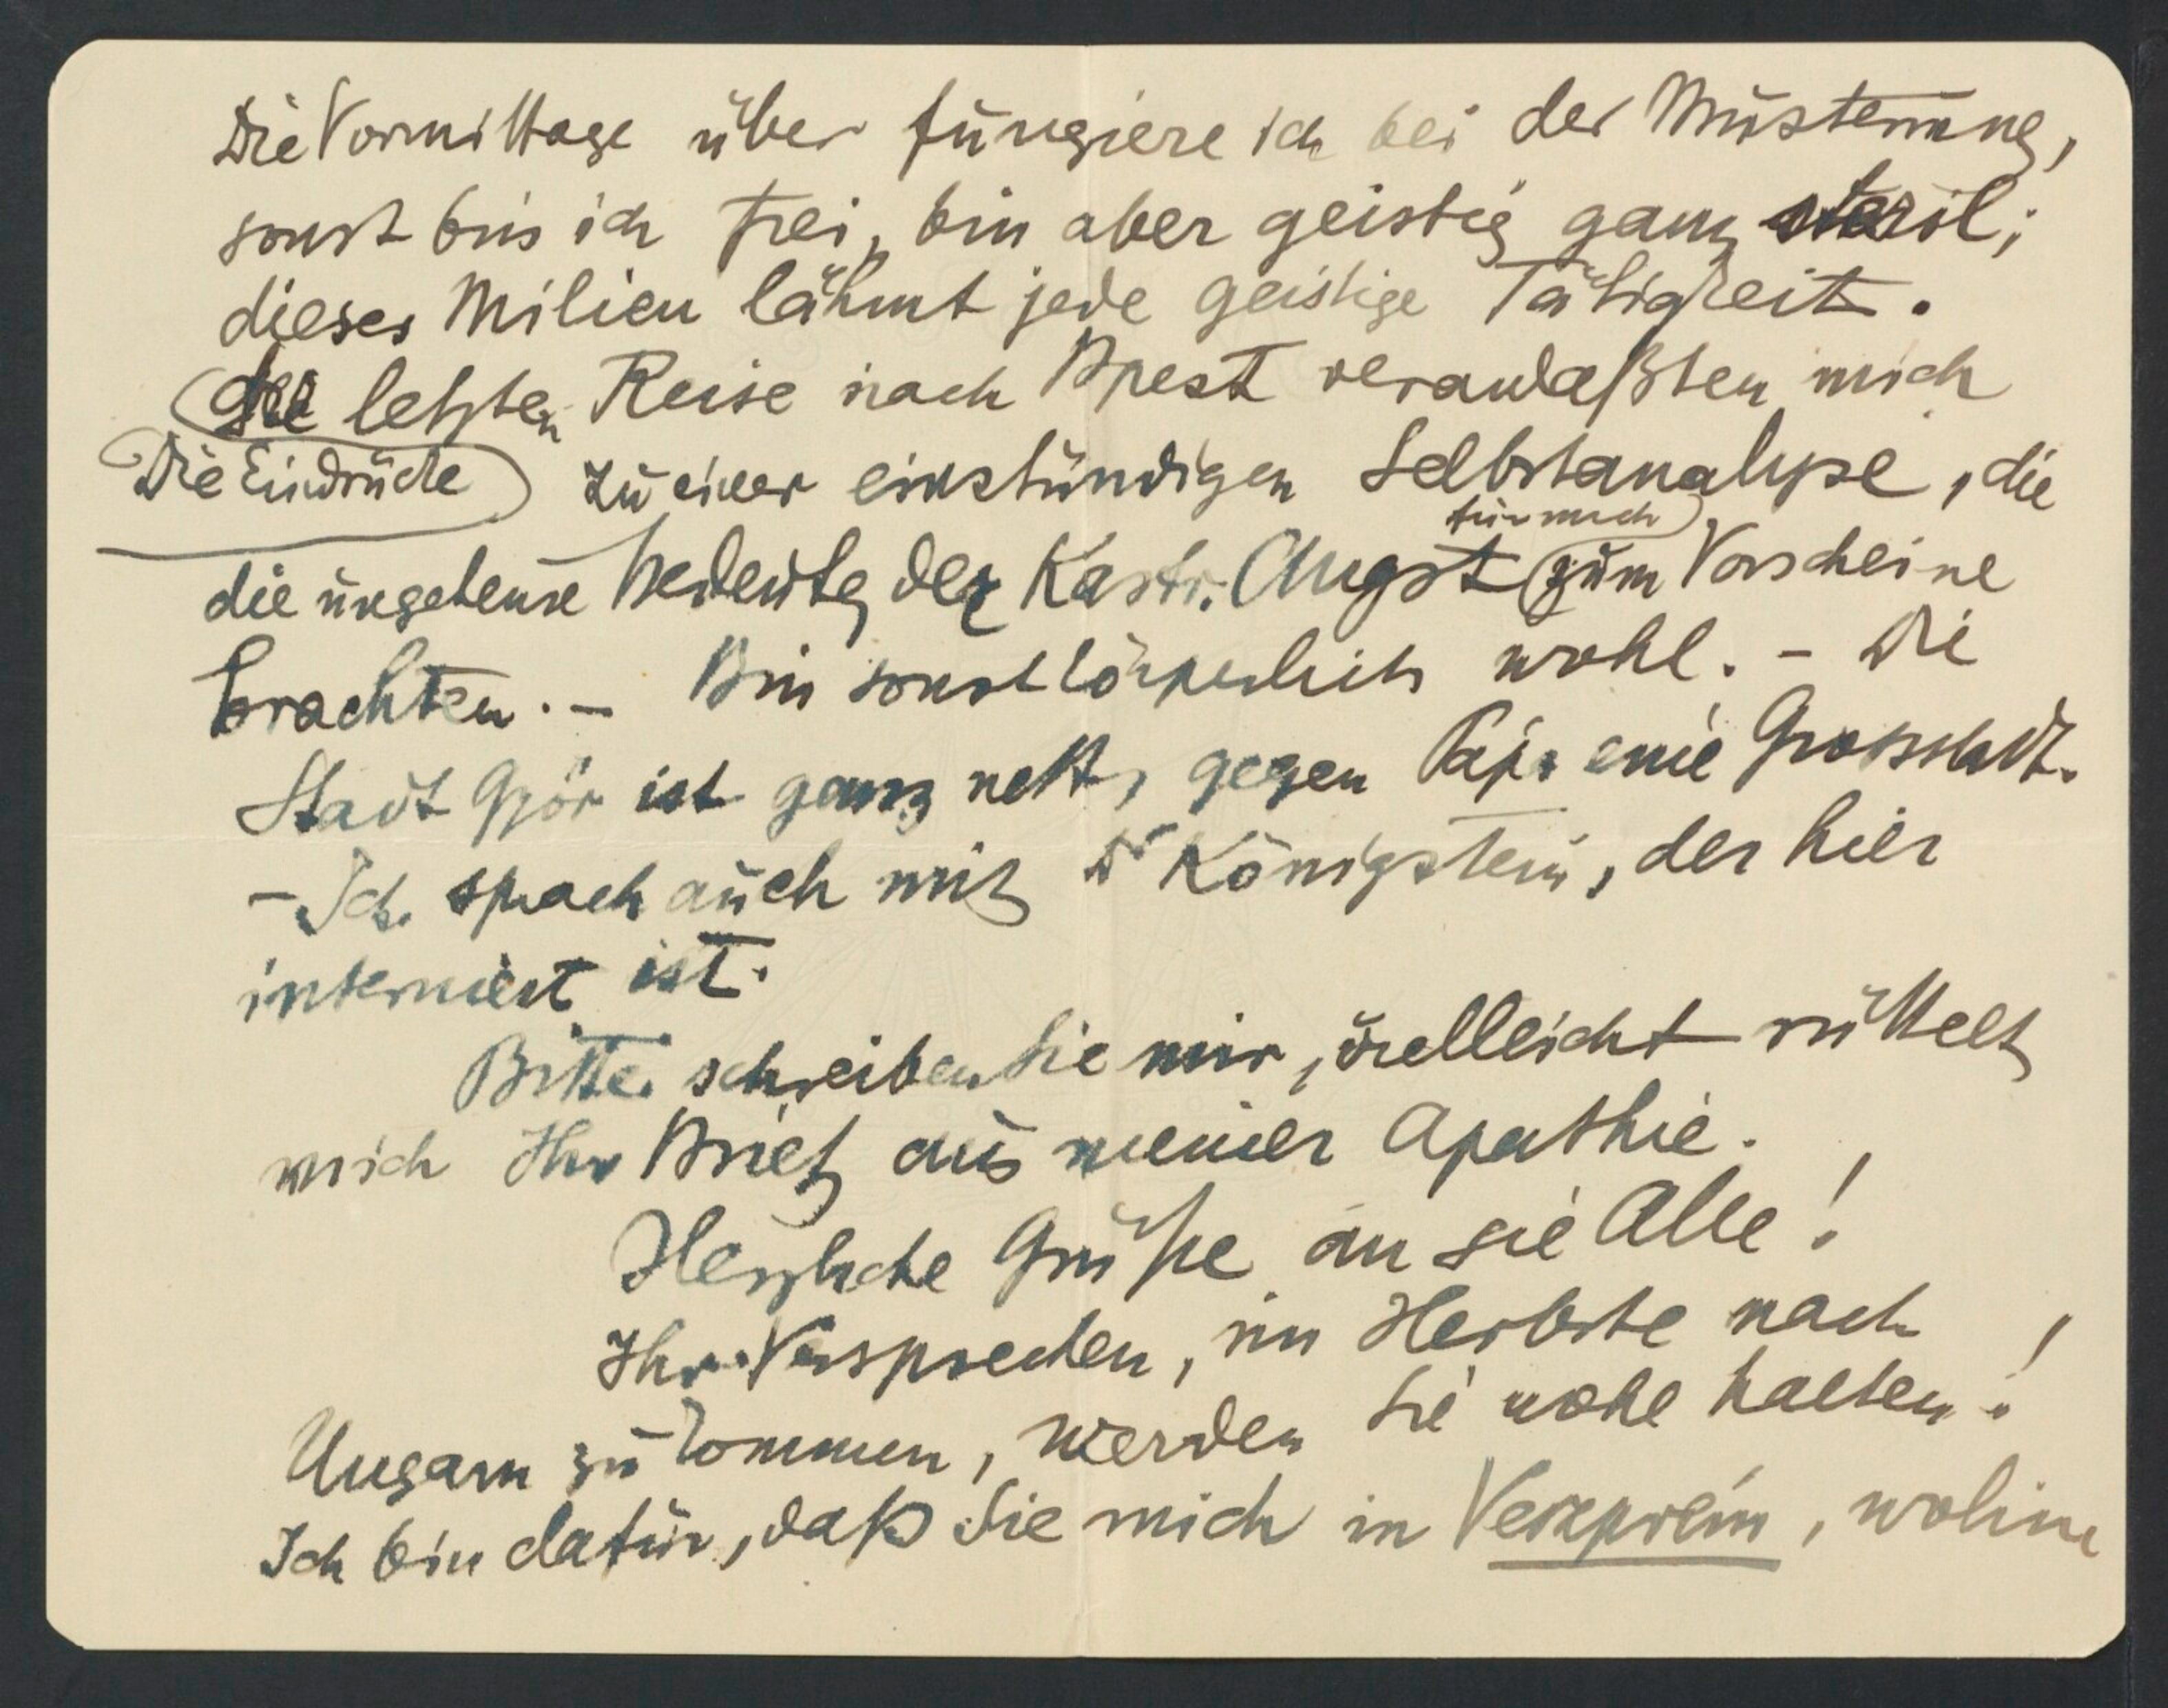 Die Vormittage über fungiere ich bei der Musterung,
sonst bin ich frei, bin aber geistig ganz steril;
dieses Milieu lähmt jede geistige Tätigkeit.
der letzten Reise nach Bpest veranlaßten mich
Die Eindrücke zu einer einstündigen Selbstanalyse, die
für mich
die ungeheure Bedeutg der Kastr. Angst zum Vorscheine
brachten. – Bin sonst körperlich wohl. – Die
Stadt Györ ist ganz nett, gegen Pápa eine Grossstadt.
– Ich sprach auch mit Dr Königstein, der hier
interniert ist.
Bitte schreiben Sie mir, vielleicht rüttelt
mich Ihr Brief aus meiner Apathie.
Herzliche Grüße an sie Alle!
Ihr Versprechen, im Herbste nach
Ungarn zu kommen, werden Sie wohl halten!
Ich bin dafür, daß Sie mich in Veszprém, wohin